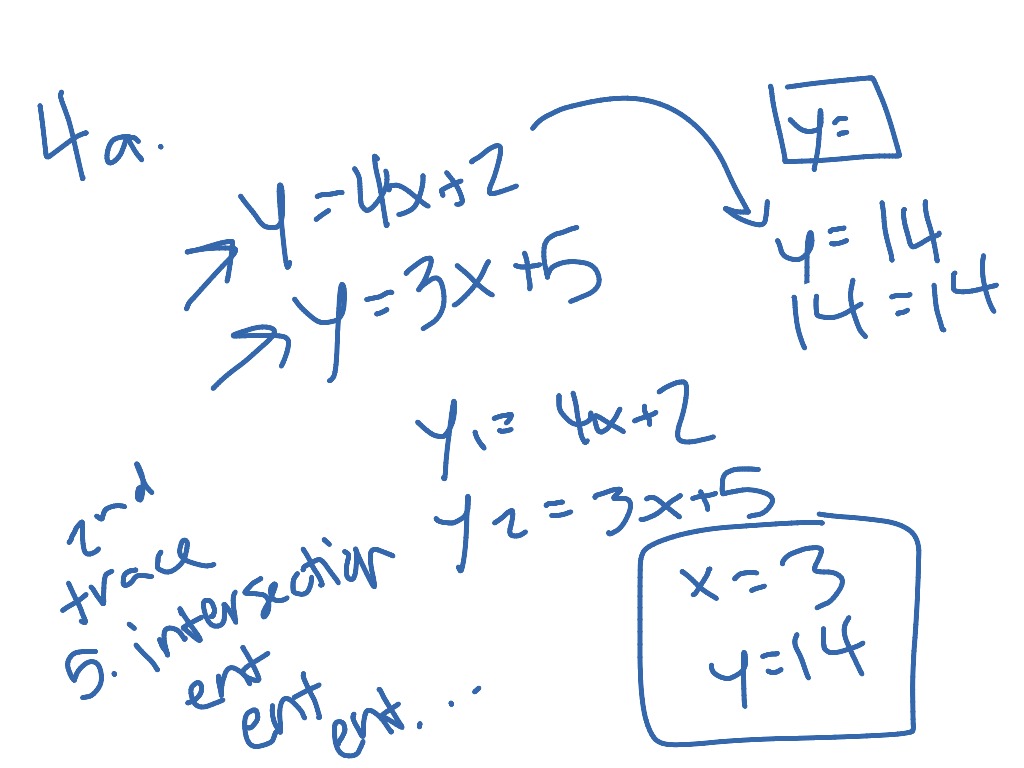 4a.
y=4x+2
y=3x+5
y=
y=14
14=14
y1=4x+2
y2=3x+5
2nd
trace
5. intersection
ent
ent
ent...
x=3
y=14